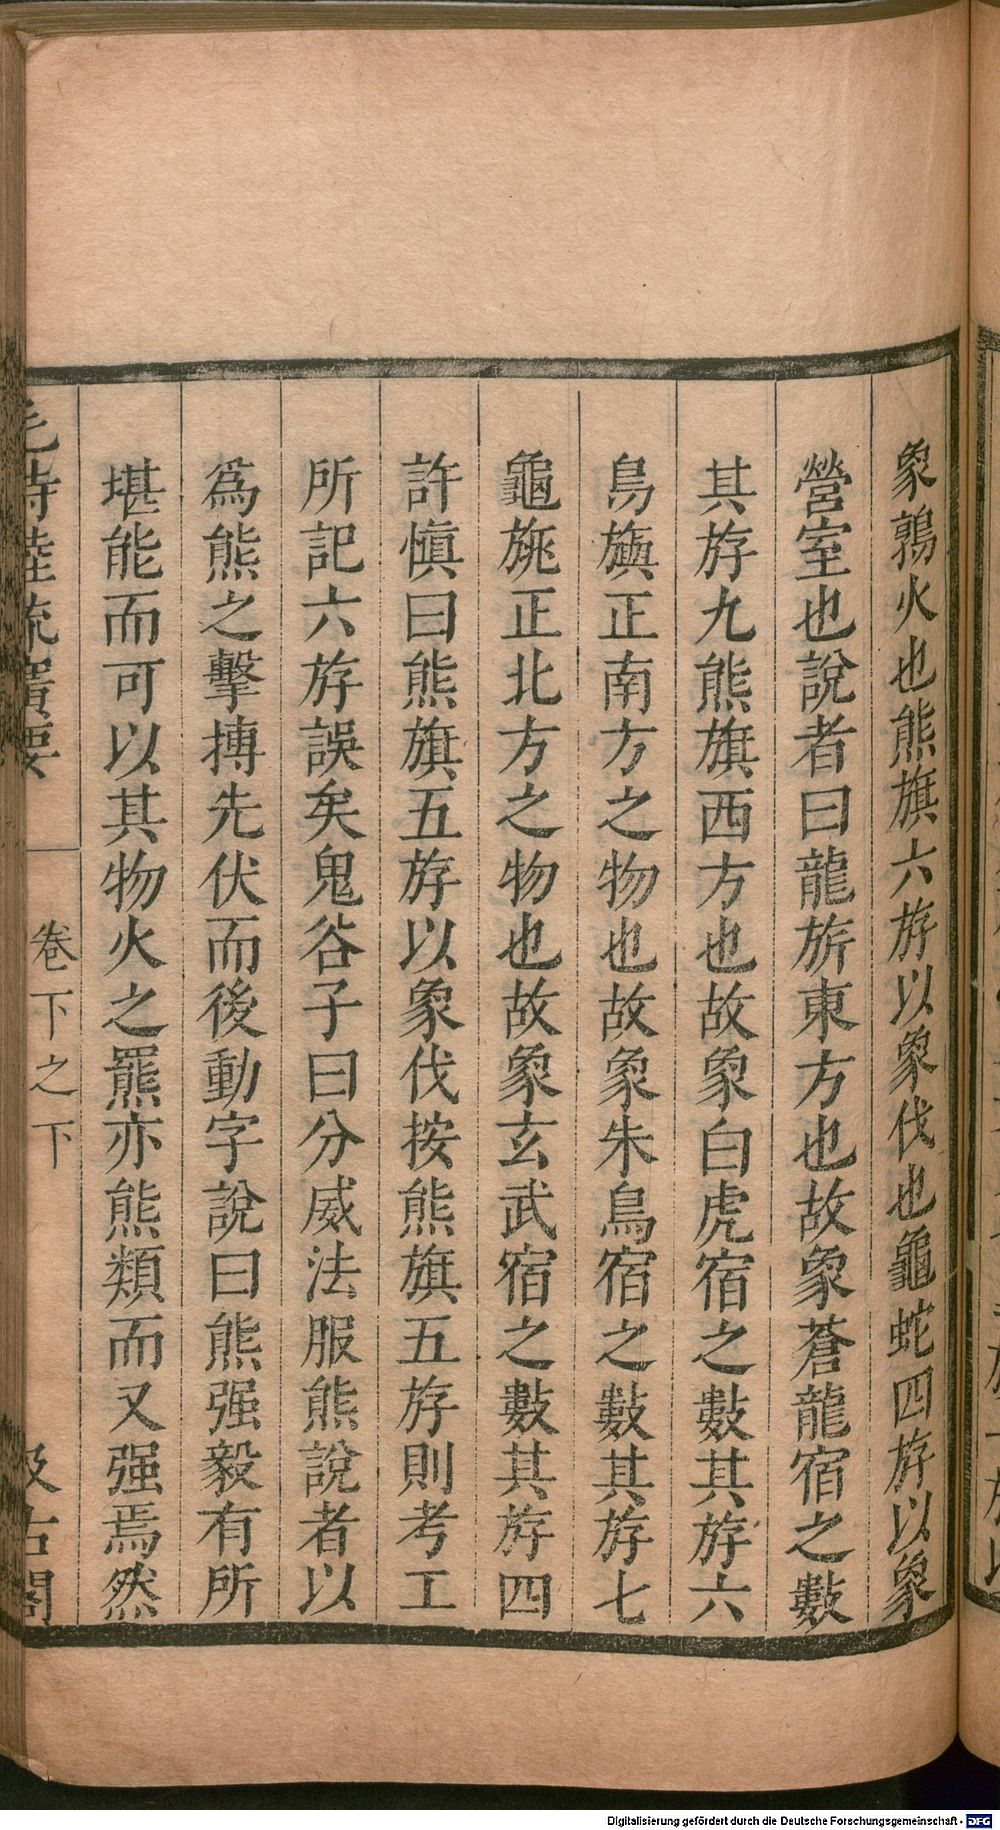 象鶉火也熊旗六斿以象伐也龜蛇四斿以象
營室也說者曰龍旂東方也故象蒼龍宿之數
其斿九熊旗西方也故象白虎宿之數其斿六
鳥旟正南方之物也故象朱鳥宿之數其斿七
龜旐正北方之物也故象玄武宿之數其斿四
許慎曰熊旗五斿以象伐按熊旗五斿則考工
所記六斿誤矣鬼谷子曰分威法服熊說者以
爲熊之擊搏先伏而後動字說曰熊强毅有所
堪能而可以其物火之羆亦熊類而又强焉然
毛詩陸疏廣要 卷下之下 汲古閣
Digitalisierung gefördert durch die Deutsche Forschungsgemeinschaft - DFG